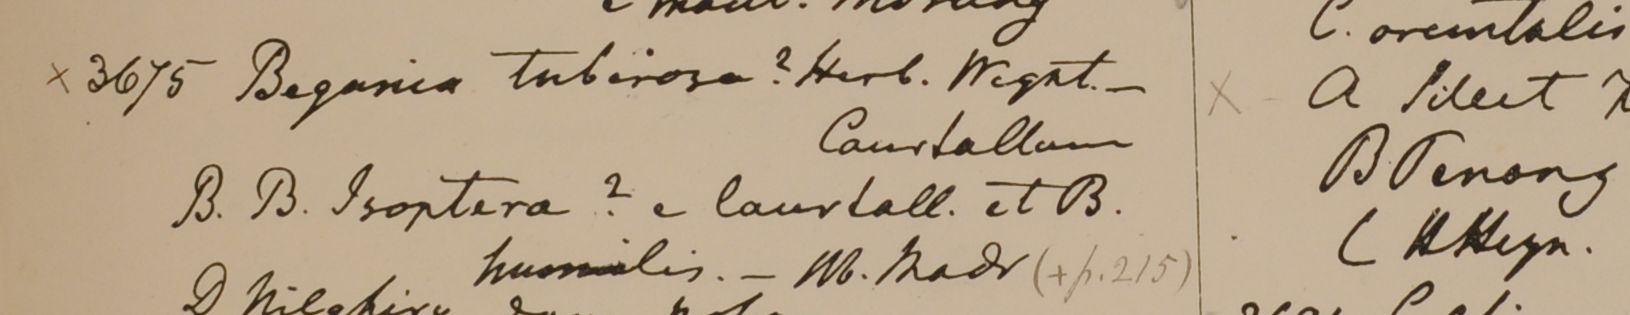 × 3675 Begonia tuberosa? Herb. Wight. —
Courtallum
B. B. Isoptera? e Courtall. et B.
humilis. — M. Madr (+p.215)
D Nilghiry
C. orientalis
× A Silect
B Penang
C H Heyn.